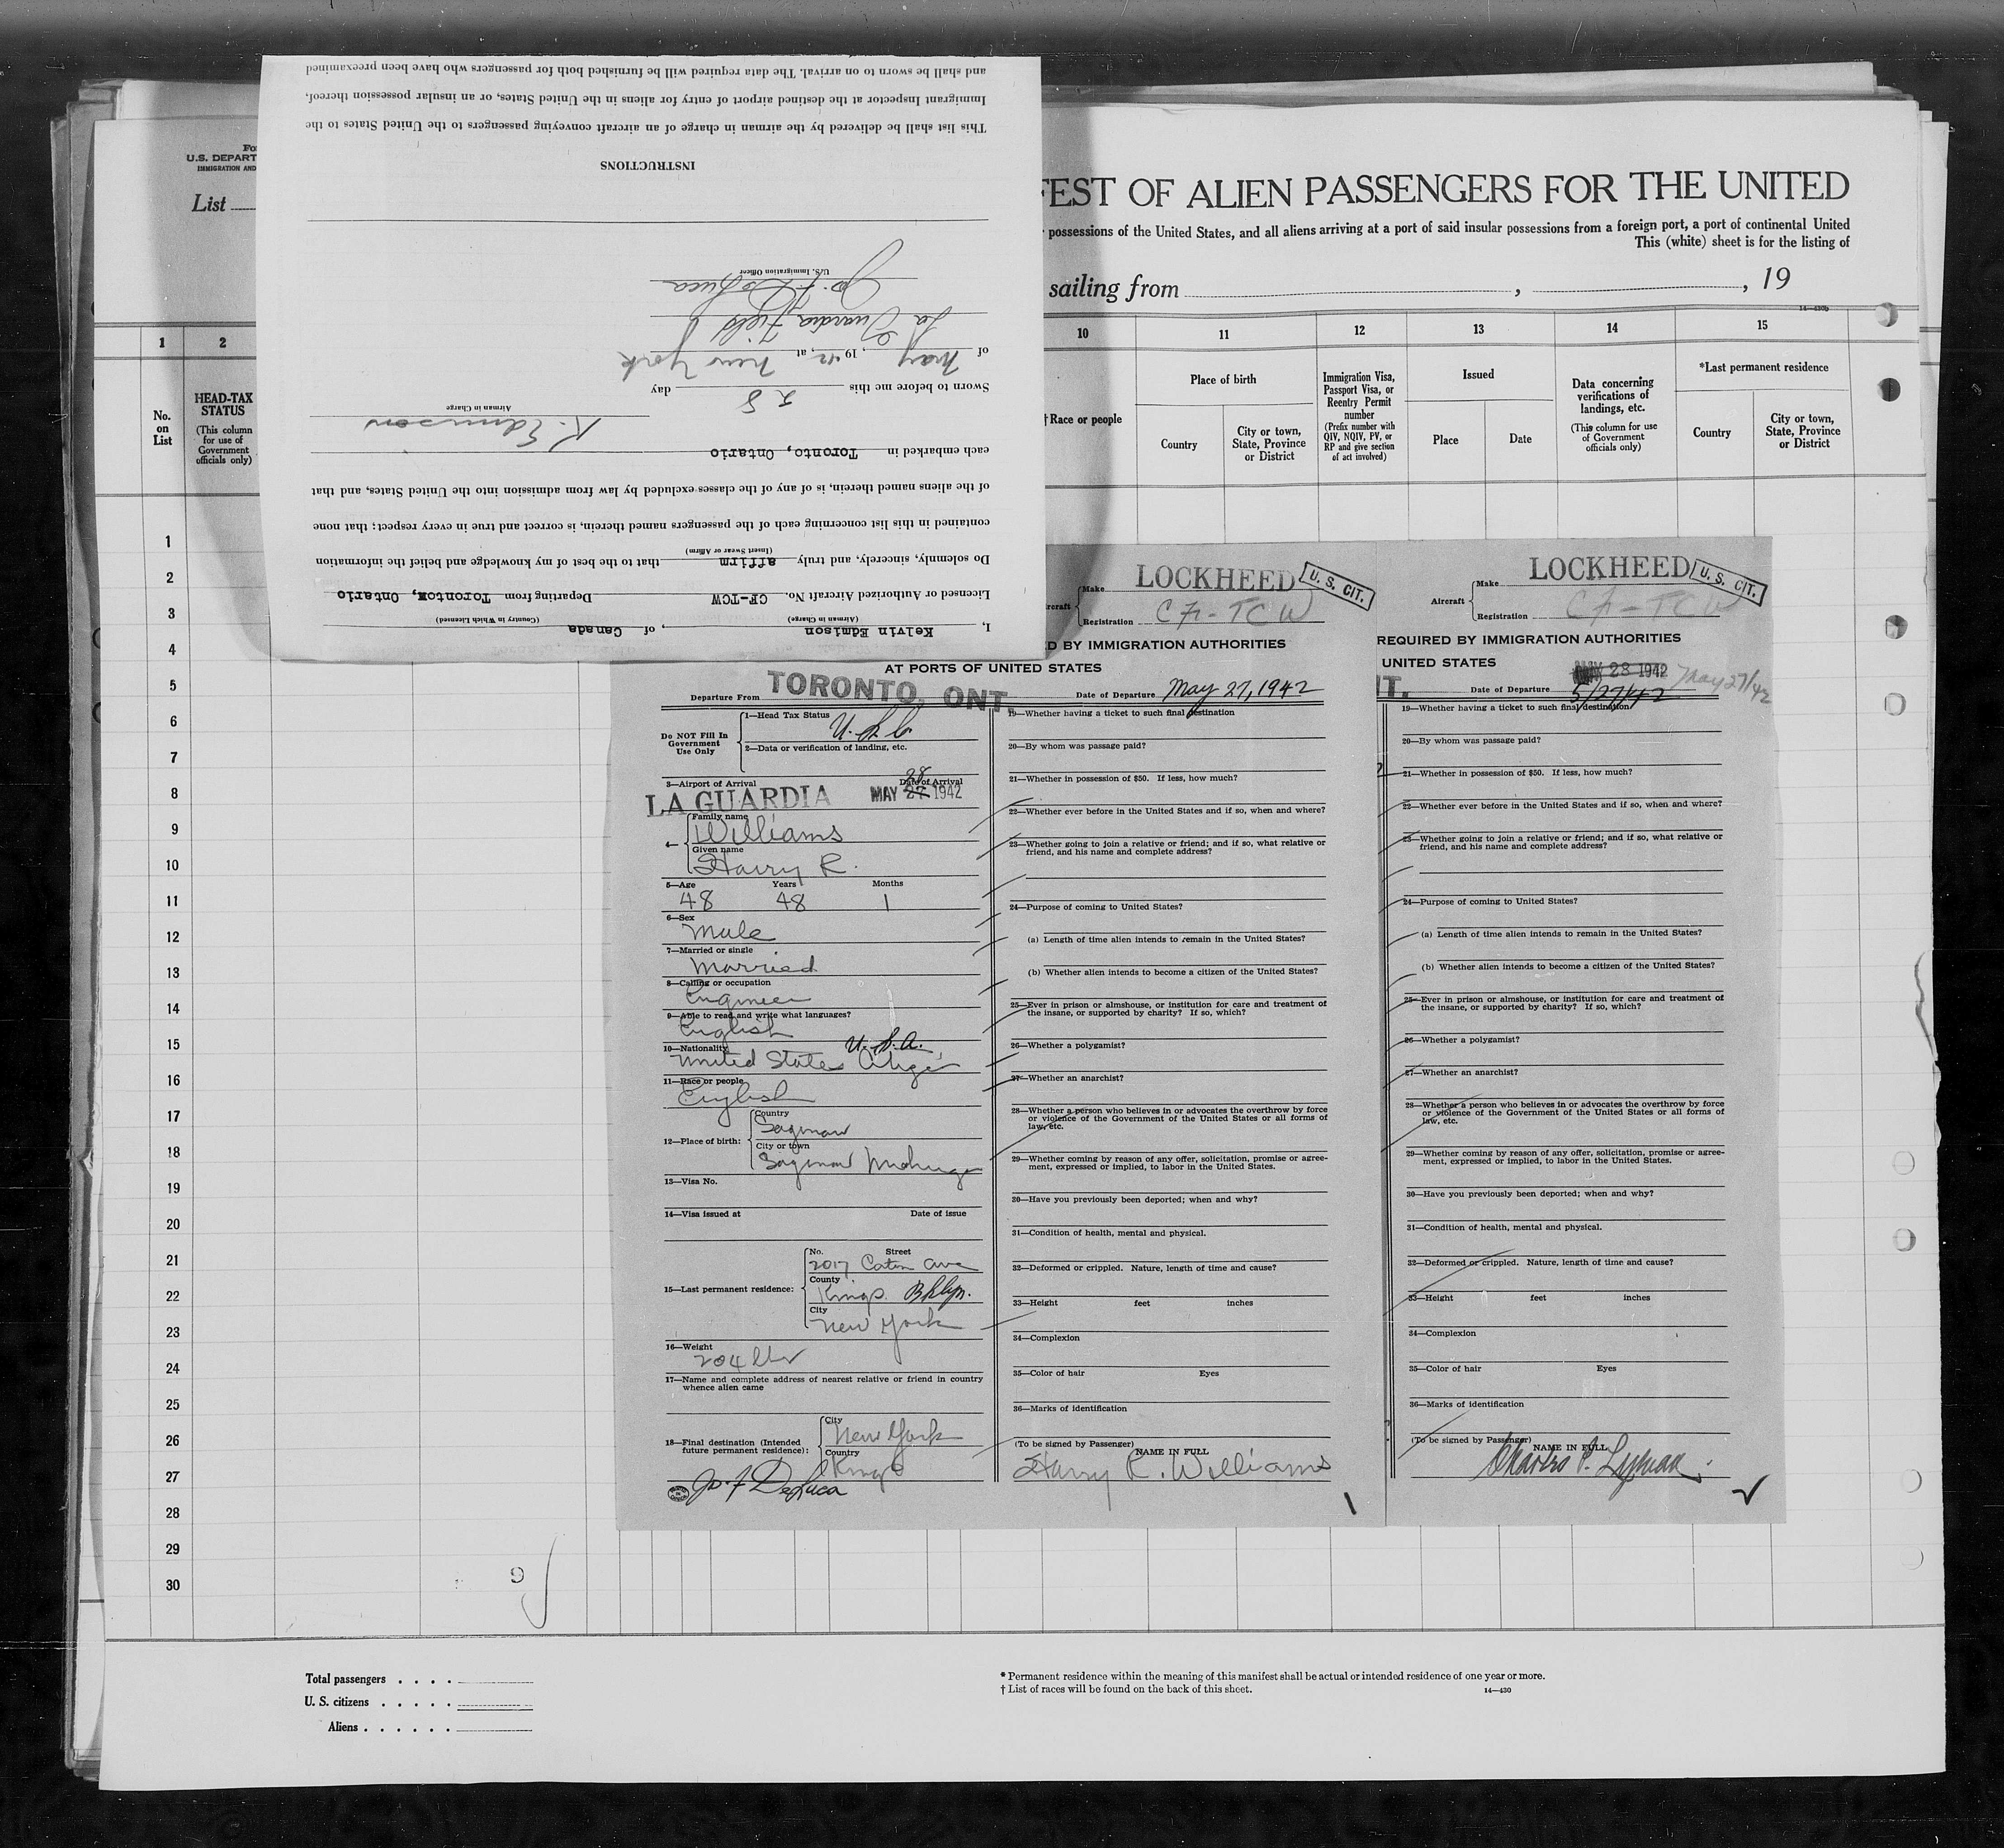 and shall be sworn to on arrival. The data required will be furnished both for passengers who have been preexamined
Immigrant Inspector at the destined airport of entry for aliens in the United States, or an insular possession thereof,
This list shall be delivered by the airman in charge of an aircraft conveying passengers to the United States to the
INSTRUCTIONS
U.S. Immigration Officer
Jo. F. DeLuca
La Guardia Field
of May, 1942, at New York
Sworn to before me this 28 day
Airman in Charge
K. Edmison
each embarked in Toronto, Ontario
of the aliens named therein, is of any of the classes excluded by law from admission into the United States, and that
contained in this list concerning each of the passengers named therein, is correct and true in every respect; that none
(Insert Swear or Affirm)
Do solemnly, sincerely, and truly affirm that to the best of my knowledge and belief the information
Licensed or Authorized Aircraft No. CF-TCW Departing from Toronto, Ontario
(Airman in Charge) (Country in Which Licensed)
I, Kelvin Edmison, of Canada
U.S. DEPART
IMMIGRATION AND
List
FEST OF ALIEN PASSENGERS FOR THE UNITED
possessions of the United States, and all aliens arriving at a port of said insular possessions from a foreign port, a port of continental United
This (white) sheet is for the listing of
sailing from , , 19
1 2 10 11 12 13 14 15
No. on List
HEAD-TAX STATUS
(This column for use of Government officials only)
† Race or people
Place of birth
Country
City or town, State, Province or District
Immigration Visa, Passport Visa, or Reentry Permit number
(Prefix number with QIV, NQIV, PV, or RP and give section of act involved)
Issued
Place
Date
Data concerning verifications of landings, etc.
(This column for use of Government officials only)
*Last permanent residence
Country
City or town, State, Province or District
1
2
3
4
5
6
7
8
9
10
11
12
13
14
15
16
17
18
19
20
21
22
23
24
25
26
27
28
29
30
Make LOCKHEED U. S. CIT.
Registration CF-TCW
D BY IMMIGRATION AUTHORITIES
AT PORTS OF UNITED STATES
Departure From TORONTO, ONT. Date of Departure May 27, 1942
Do NOT Fill In Government Use Only
1—Head Tax Status U.S.C.
2—Data or verification of landing, etc.
3—Airport of Arrival Date of Arrival
LA GUARDIA MAY 27 28 1942
4— Family name
Williams
Given name
Harry R.
5—Age Years Months
48 48 1
6—Sex
Male
7—Married or single
Married
8—Calling or occupation
Engineer
9—Able to read and write what languages?
English
10—Nationality U.S.A.
United States Citizen
11—Race or people
English
12—Place of birth:
Country
Saginaw
City or town
Saginaw Michigan
13—Visa No.
14—Visa issued at Date of issue
15—Last permanent residence:
No. Street
2017 Caton Ave
County
Kings Bklyn.
City
New York
16—Weight
204 lbs
17—Name and complete address of nearest relative or friend in country whence alien came
18—Final destination (Intended future permanent residence):
City
New York
Country
Kings
Jo. F DeLuca
19—Whether having a ticket to such final destination
20—By whom was passage paid?
21—Whether in possession of $50. If less, how much?
22—Whether ever before in the United States and if so, when and where?
23—Whether going to join a relative or friend; and if so, what relative or friend, and his name and complete address?
24—Purpose of coming to United States?
(a) Length of time alien intends to remain in the United States?
(b) Whether alien intends to become a citizen of the United States?
25—Ever in prison or almshouse, or institution for care and treatment of the insane, or supported by charity? If so, which?
26—Whether a polygamist?
27—Whether an anarchist?
28—Whether a person who believes in or advocates the overthrow by force or violence of the Government of the United States or all forms of law, etc.
29—Whether coming by reason of any offer, solicitation, promise or agreement, expressed or implied, to labor in the United States.
30—Have you previously been deported; when and why?
31—Condition of health, mental and physical.
32—Deformed or crippled. Nature, length of time and cause?
33—Height feet inches
34—Complexion
35—Color of hair Eyes
36—Marks of identification
(To be signed by Passenger) NAME IN FULL
Harry R. Williams
Aircraft Make LOCKHEED U. S. CIT.
Registration CF-TCW
REQUIRED BY IMMIGRATION AUTHORITIES
UNITED STATES
MAY 28 1942 May 27/42
T. Date of Departure 5/27/42
19—Whether having a ticket to such final destination
20—By whom was passage paid?
21—Whether in possession of $50. If less, how much?
22—Whether ever before in the United States and if so, when and where?
23—Whether going to join a relative or friend; and if so, what relative or friend, and his name and complete address?
24—Purpose of coming to United States?
(a) Length of time alien intends to remain in the United States?
(b) Whether alien intends to become a citizen of the United States?
25—Ever in prison or almshouse, or institution for care and treatment of the insane, or supported by charity? If so, which?
26—Whether a polygamist?
27—Whether an anarchist?
28—Whether a person who believes in or advocates the overthrow by force or violence of the Government of the United States or all forms of law, etc.
29—Whether coming by reason of any offer, solicitation, promise or agreement, expressed or implied, to labor in the United States.
30—Have you previously been deported; when and why?
31—Condition of health, mental and physical.
32—Deformed or crippled. Nature, length of time and cause?
33—Height feet inches
34—Complexion
35—Color of hair Eyes
36—Marks of identification
(To be signed by Passenger) NAME IN FULL
Charles P.
Total passengers . . . .
U. S. citizens . . . . .
Aliens . . . . . .
* Permanent residence within the meaning of this manifest shall be actual or intended residence of one year or more.
† List of races will be found on the back of this sheet. 14—430